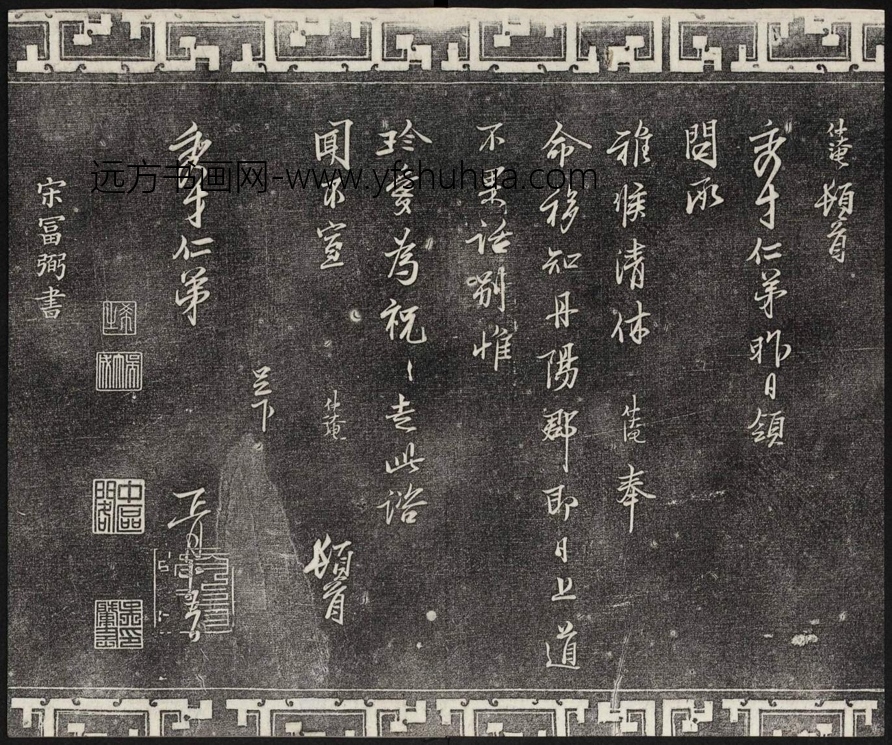 仲淹頓首
秀才仁弟昨日領
問承
雅候清休仲淹奉
命移知丹陽郡即日上道
不果話别惟
珍愛為祝〻走此諮
聞不宣仲淹頓首
足下
秀才仁弟
宋富弼書
远方书画网-www.yfshuhua.com